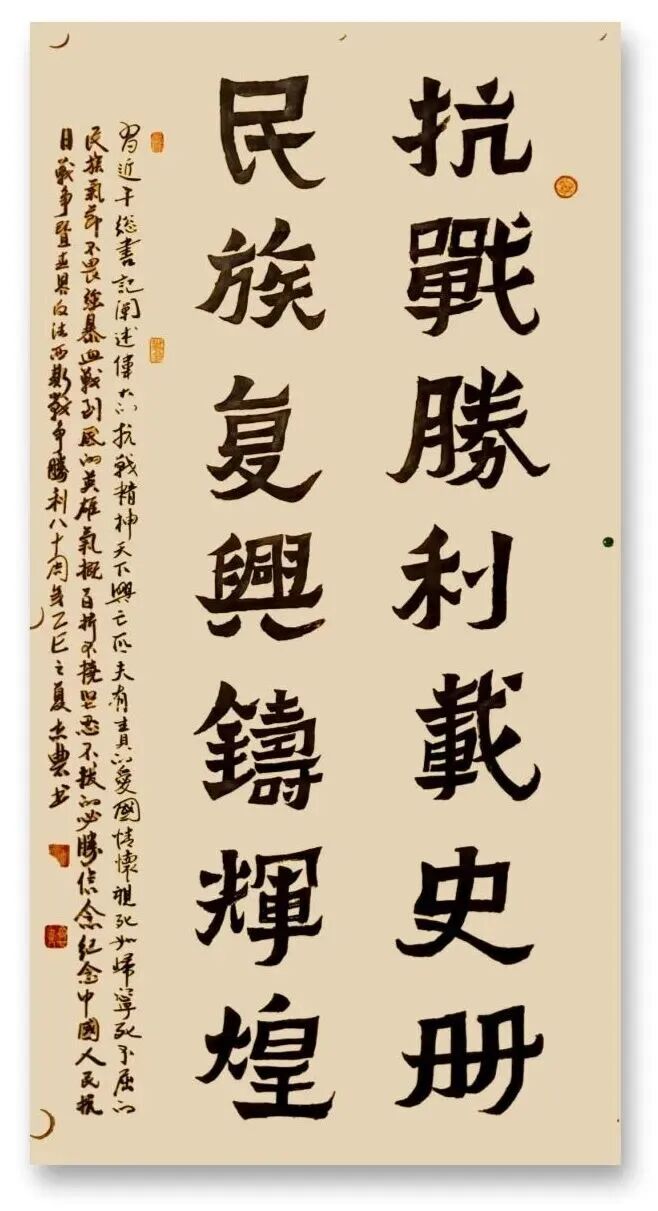 抗戰勝利載史册
民族复興鑄輝煌
習近平総書記阐述偉大的抗战精神天下興亡匹夫有責的愛國情懷視死如歸寧死不屈的
民族氣节不畏强暴血戰到底的英雄氣概百折不撓坚忍不拔的必勝信念纪念中國人民抗
日戰争暨世界反法西斯戰争勝利八十周年乙巳之夏典书